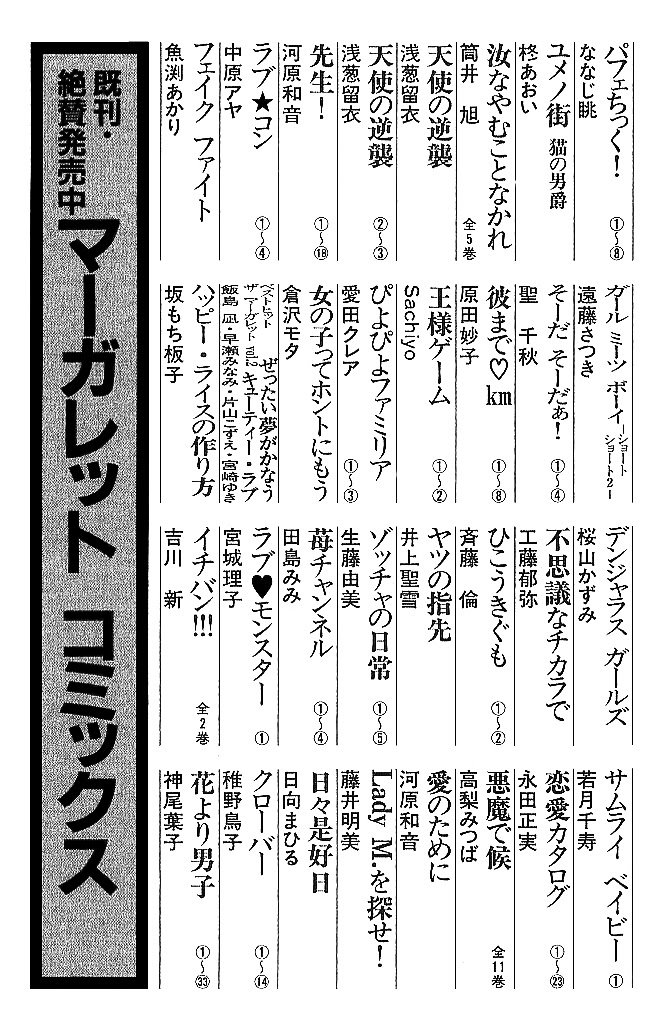 パフェちっく！ ①〜⑧
ななじ眺
ユメノ街 猫の男爵
柊あおい
汝なやむことなかれ 全5巻
筒井 旭
天使の逆襲
浅葱留衣
天使の逆襲 ②〜③
浅葱留衣
先生！ ①〜⑱
河原和音
ラブ★コン ①〜④
中原アヤ
フェイク ファイト
魚渕あかり
ガール ミーツ ボーイ −ショートショート2−
遠藤さつき
そーだ そーだぁ！ ①〜④
聖 千秋
彼まで♡km ①〜⑧
原田妙子
王様ゲーム ①〜②
Sachiyo
ぴよぴよファミリア ①〜③
愛田クレア
女の子ってホントにもう
倉沢モタ
ベストヒット ザ マーガレット vol.2 ぜったい夢がかなう キューティー・ラブ
飯島 凪・早瀬みなみ・片山こずえ・宮崎ゆき
ハッピー・ライスの作り方
坂もち板子
デンジャラス ガールズ
桜山かずみ
不思議なチカラで
工藤郁弥
ひこうきぐも ①〜②
斉藤 倫
ヤツの指先
井上聖雪
ゾッチャの日常 ①〜⑤
生藤由美
苺チャンネル ①〜④
田島みみ
ラブ♥モンスター ①
宮城理子
イチバン!!! 全2巻
吉川 新
サムライ ベイビー ①
若月千寿
恋愛カタログ ①〜㉓
永田正実
悪魔で候 全11巻
高梨みつば
愛のために
河原和音
Lady M.を探せ！
藤井明美
日々是好日
日向まひる
クローバー ①〜⑭
稚野鳥子
花より男子 ①〜㉝
神尾葉子
既刊・絶賛発売中
マーガレット コミックス